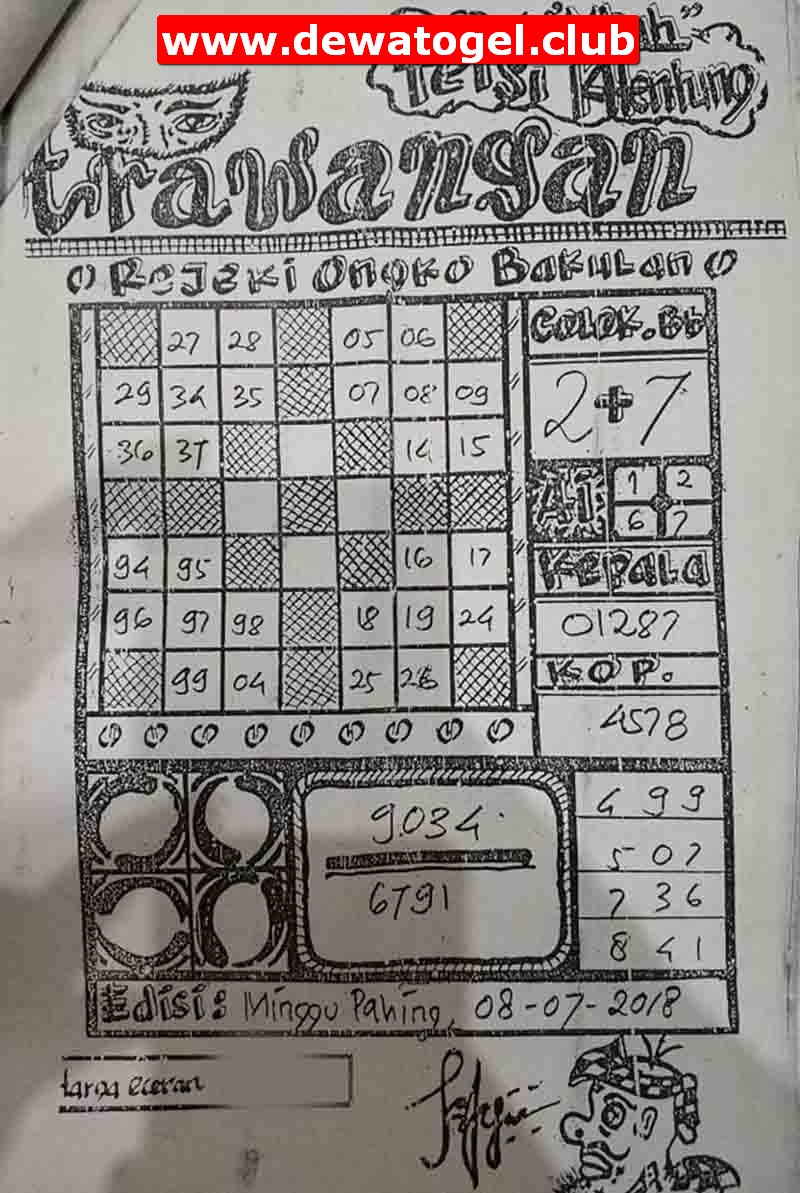 www.dewatogel.club
trawangan
Rejeki Onoko Bakulan
27 28 05 06
29 34 35 07 08 09
36 37 14 15
94 95 16 17
96 97 98 18 19 24
99 04 25 26
COLOK.BB
2+7
Ai
1 2
6 7
KEPALA
01287
KOP.
4578
9034
6791
4 99
5 07
7 36
8 41
Edisi: Minggu Pahing, 08-07-2018